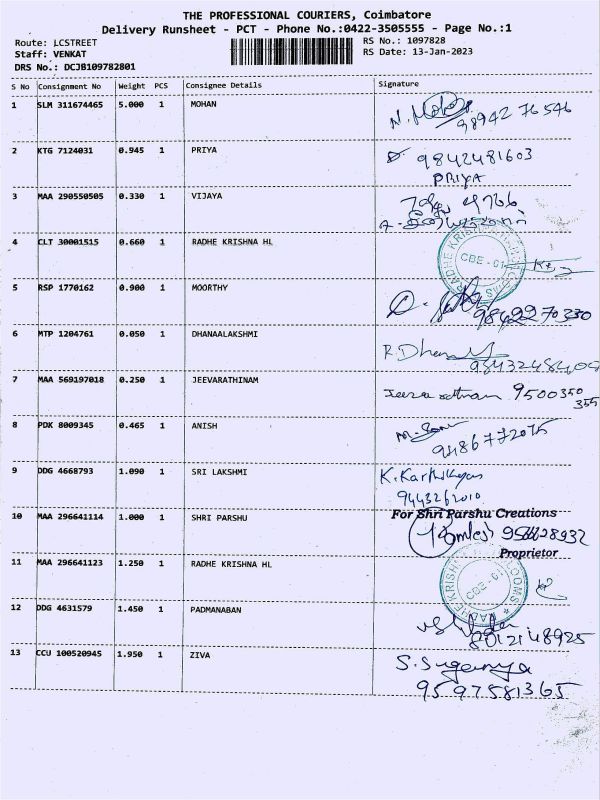 THE PROFESSIONAL COURIERS, Coimbatore
Delivery Runsheet - PCT - Phone No.:0422-3505555 - Page No.:1
Route: LCSTREET RS No.: 1097828
Staff: VENKAT RS Date: 13-Jan-2023
DRS No.: DCJB109782801
S No Consignment No Weight PCS Consignee Details Signature
1 SLM 311674465 5.000 1 MOHAN
98942 76546
2 KTG 7124031 0.945 1 PRIYA 9842481603
PRIYA
3 MAA 290550505 0.330 1 VIJAYA
4 CLT 30001515 0.660 1 RADHE KRISHNA HL RADHE KRISHNA
CBE - 01
5 RSP 1770162 0.900 1 MOORTHY
9842270330
6 MTP 1204761 0.050 1 DHANAALAKSHMI
7 MAA 569197018 0.250 1 JEEVARATHINAM 9500350
355
8 PDK 8009345 0.465 1 ANISH
9486772075
9 DDG 4668793 1.090 1 SRI LAKSHMI K. Karthikeyan
9443262010
10 MAA 296641114 1.000 1 SHRI PARSHU For Shri Parshu Creations
Proprietor
11 MAA 296641123 1.250 1 RADHE KRISHNA HL RADHE KRISHNA
CBE - 01
12 DDG 4631579 1.450 1 PADMANABAN
8012148925
13 CCU 100520945 1.950 1 ZIVA S. Suganya
9597581365